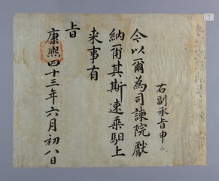 右副承旨申
今以爾為司諫院獻
納爾其斯速乘馹上
来事有
旨
康熙四十三年六月初八日